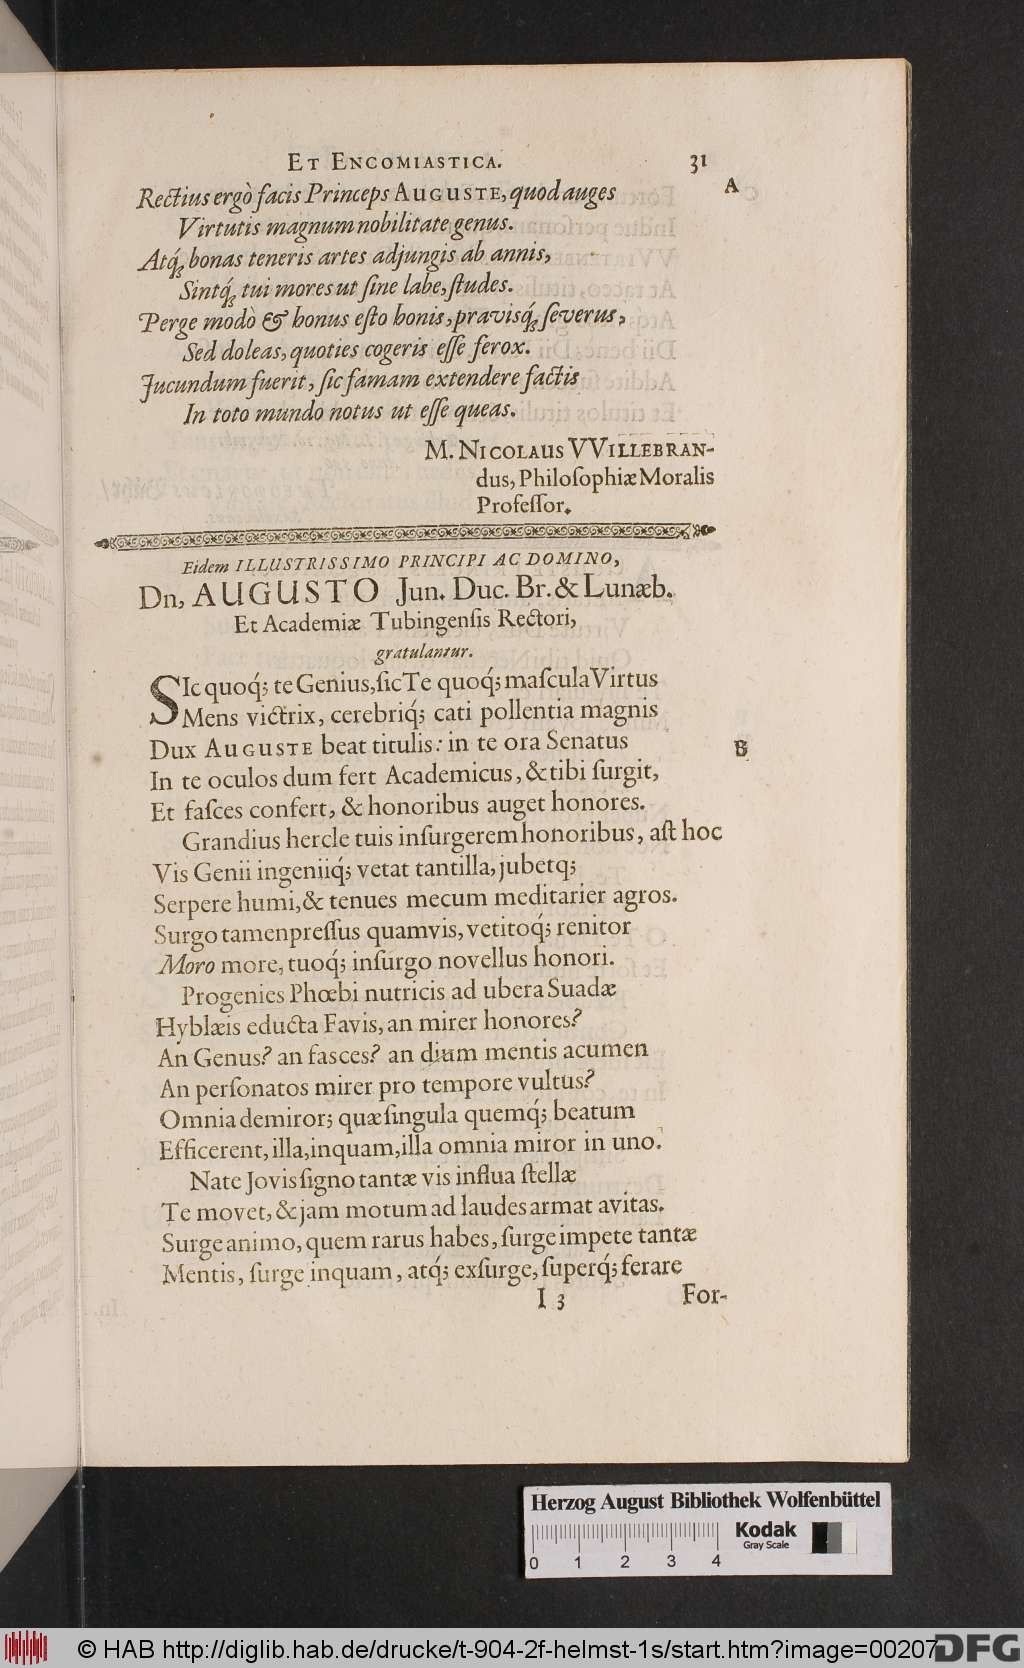 ET ENCOMIASTICA. 31
Rectius ergò facis Princeps AUGUSTE, quod auges A
Virtutis magnum nobilitate genus.
Atq́; bonas teneris artes adjungis ab annis,
Sintq́; tui mores ut ſine labe, ſtudes.
Perge modò & bonus eſto bonis, pravisq́; ſeverus,
Sed doleas, quoties cogeris eſſe ferox.
Jucundum fuerit, ſic famam extendere factis
In toto mundo notus ut eſſe queas.
M. NICOLAUS VVILLEBRAN-
dus, Philoſophiæ Moralis
Profeſſor.
Eidem ILLUSTRISSIMO PRINCIPI AC DOMINO,
Dn, AUGUSTO Jun. Duc. Br. & Lunæb.
Et Academiæ Tubingenſis Rectori,
gratulantur.
SIc quoq́; te Genius, ſic Te quoq́; maſcula Virtus
Mens victrix, cerebriq́; cati pollentia magnis
Dux AUGUSTE beat titulis: in te ora Senatus B
In te oculos dum fert Academicus, & tibi ſurgit,
Et faſces confert, & honoribus auget honores.
Grandius hercle tuis inſurgerem honoribus, aſt hoc
Vis Genii ingeniiq́; vetat tantilla, jubetq;
Serpere humi, & tenues mecum meditarier agros.
Surgo tamen preſſus quamvis, vetitoq́; renitor
Moro more, tuoq́; inſurgo novellus honori.
Progenies Phœbi nutricis ad ubera Suadæ
Hyblæis educta Favis, an mirer honores?
An Genus? an fasces? an dium mentis acumen
An perſonatos mirer pro tempore vultus?
Omnia demiror; quæ ſingula quemq́; beatum
Efficerent, illa, inquam, illa omnia miror in uno.
Nate Jovis ſigno tantæ vis influa ſtellæ
Te movet, & jam motum ad laudes armat avitas.
Surge animo, quem rarus habes, ſurge impete tantæ
Mentis, ſurge inquam, atq́; exſurge, ſuperq́; ferare
I 3 For-
Herzog August Bibliothek Wolfenbüttel
Kodak
Gray Scale
0 1 2 3 4
© HAB http://diglib.hab.de/drucke/t-904-2f-helmst-1s/start.htm?image=00207
DFG